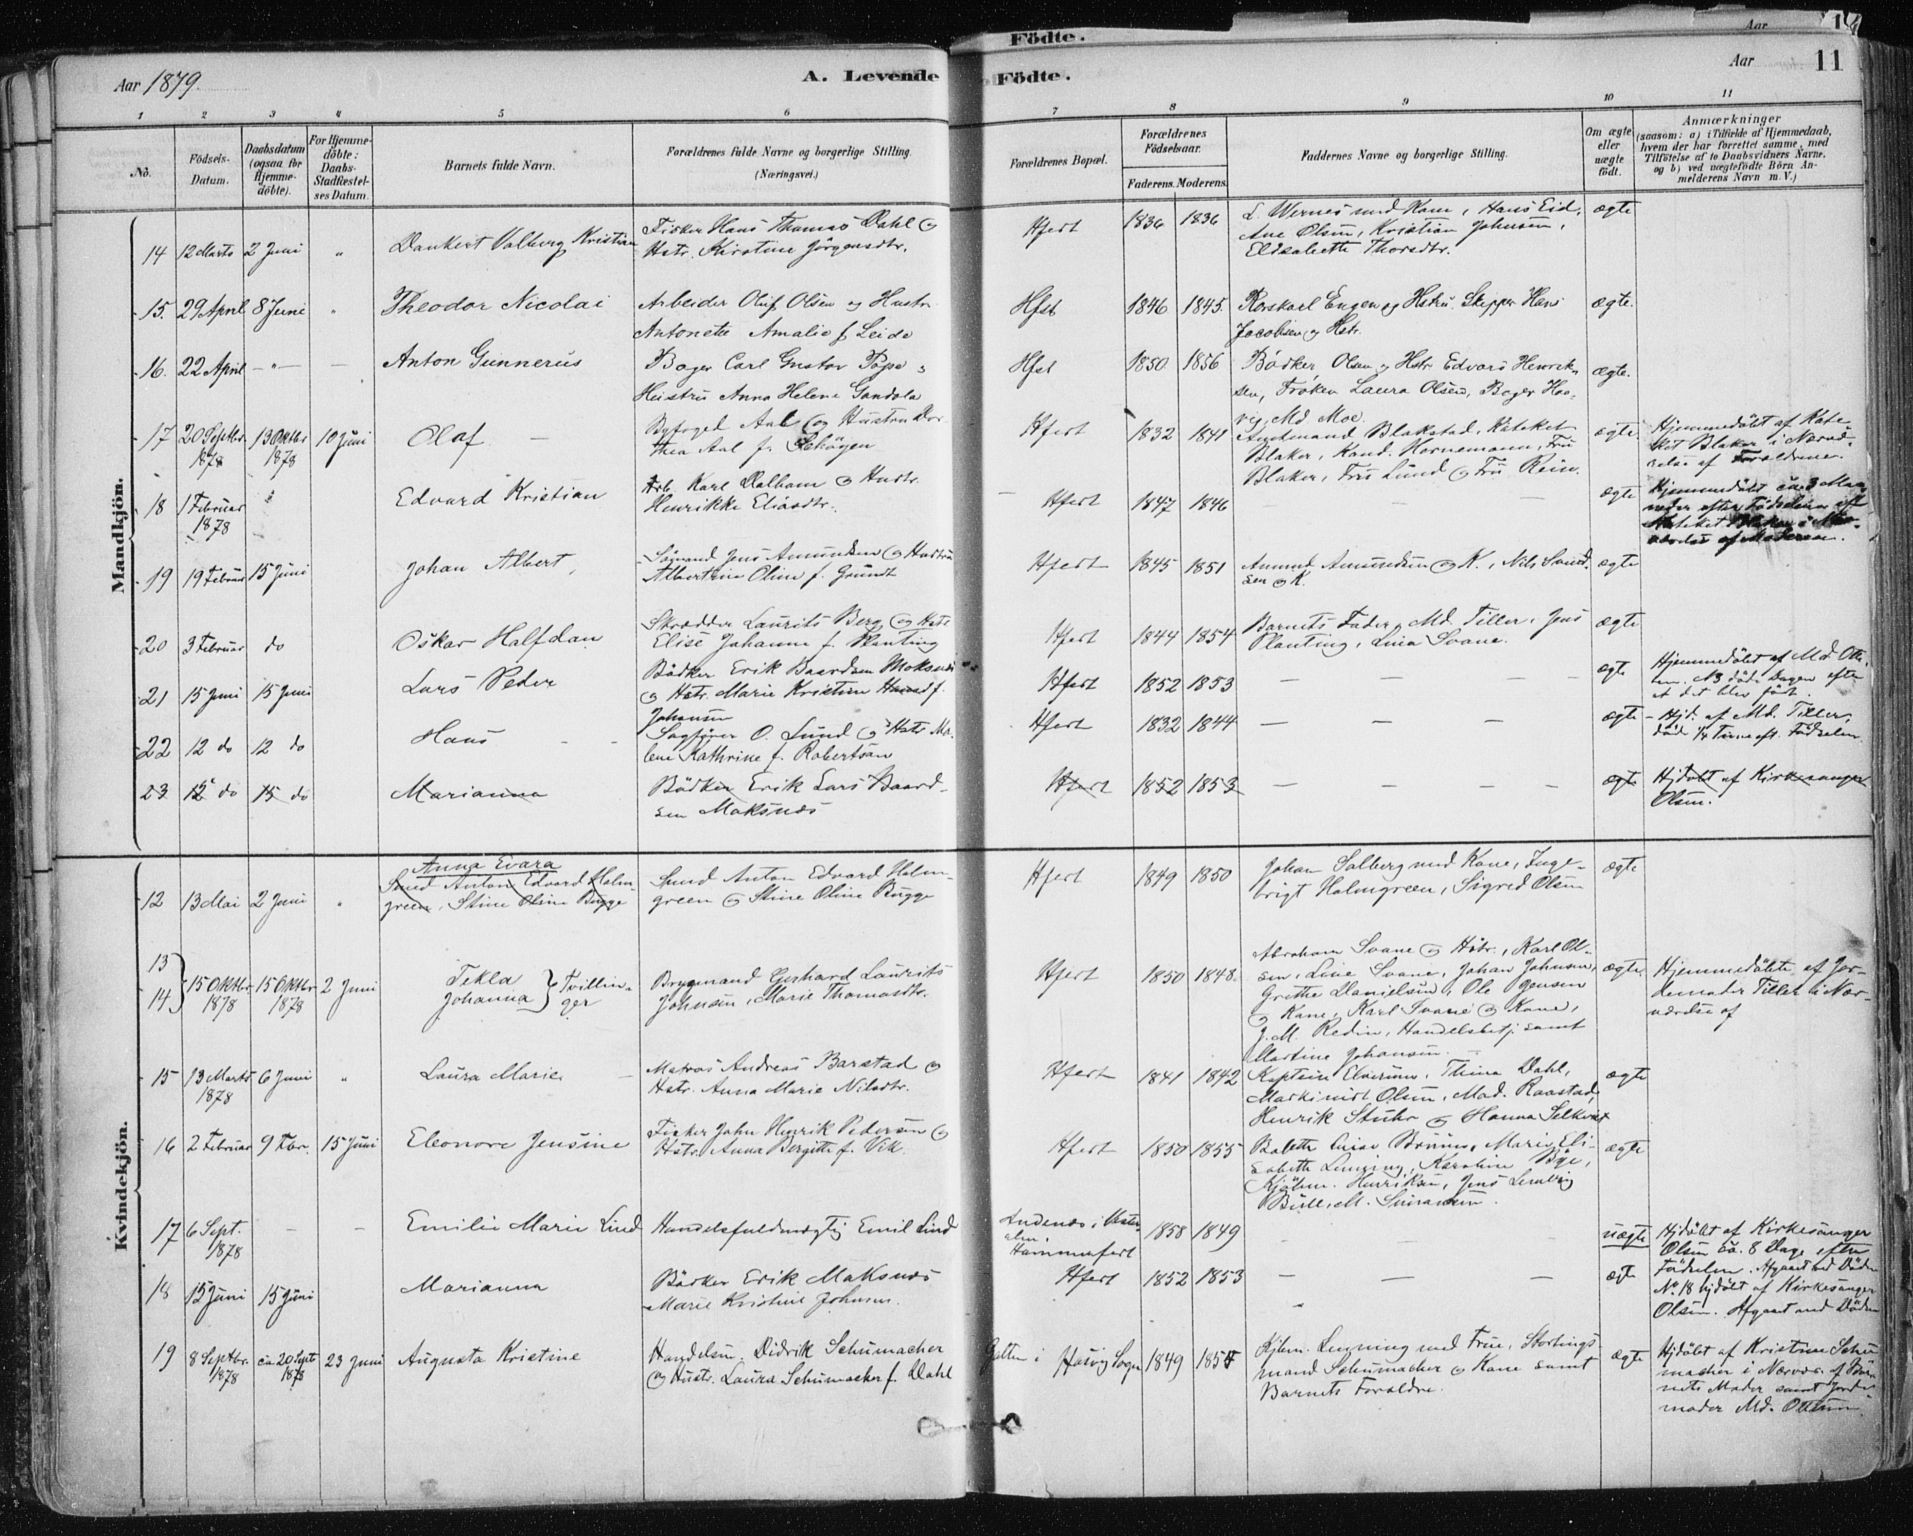 Födte.
Aar
Aar 1879.
A. Levende
Födte.
Aar
11
1 2 3 4 5 6 7 8 9 10 11
No.
Födsels-Datum.
Daabsdatum (ogsaa for Hjemmedöbte).
For Hjemmedöbte: Daabs-Stadfæstelses Datum.
Barnets fulde Navn.
Forældrenes fulde Navne og borgerlige Stilling. (Næringsvei.)
Forældrenes Bopæl.
Forældrenes Födselsaar.
Faderens. Moderens.
Faddernes Navne og borgerlige Stilling.
Om ægte eller uægte födt.
Anmærkninger
(saasom: a) i Tilfælde af Hjemmedaab, hvem der har forrettet samme, med Tilföielse af to Daabsvidners Navne, og b) ved uægtefödte Börn Anmelderens Navn m. V.)
Mandkjön.
14 12 Marts 2 Juni " Dankert Valberg Kristian
Fisker Hans Thomas Dahl og
Hstr. Kirstine Jörgensdtr.
Hfert 1836 1836
L. Wernes med Kone, Hans Eid,
Ane Olsen, Kristian Johnsen,
Elisabette Thorsdtr.
ægte
15. 29 April 8 Juni " Theodor Nicolai
Arbeider Oluf Olsen og Hustr.
Antonette Amalie f. Leide
Hfst 1846 1845.
Engen og Hstru Skipper Hans
Jacobsen og Hstr.
ægte.
16. 22 April — " — — Anton Gunnerus
Bager Carl Gustav Pope
Heistru Anna Helene Gandola
Hfst 1850 1856
Bödker Olsen og Hstr Edvard Henrik-
sen, Fröken Laura Olsen, Bager Hoo-
vig, Md Moe.
ægte.
17 20 Septbr 1878 13 Oktbr 1878 10 Juni Olaf —
Byfoged Aal og Hustru Dor
thea Aal f. Schögen
Hfert 1832 1841
Amtmand Blakstad, Kateket
Blaker, Kand. Hornemann, Fru
Blaker, Fru Lund og Fru Rein.
ægte
Hjemmedöbt af Kate-
ket Blaker i Nærvæ-
relse af Forældrene.
18 1 Februar 1878 Edvard Kristian
Arb. Karl Dalham og Hustr.
Henrikke Eliasdtr.
Hfert 1847 1846 — — — ægte
Hjemmedöbt ca 3 Maa-
neder efter Födselen af
Kateket Blaker i Nær-
værelse af Moderen.
19 19 Februar 15 Juni Johan Albert,
Sömand Jens Amundsen og Hustru
Albertine Oline f. Grundt
Hfert 1845 1851
Amund Amundsen og K., Nils Svend-
sen og K.
ægte
20 3 Februar do Oskar Halfdan
Skrædder Laurits Berg og Hstr
Elise Johanne f. Planting
Hfert 1844 1854
Barnets Fader, Md. Tiller, Jens
Planting, Lina Svane.
ægte
21 15 Juni 15 Juni Lars Peder
Bödker Erik Baardsen Moksnes
og Hstr. Marie Kristine f.
Johansen
Hfert 1852 1853 — — — — ægte
Hjemmedöbt af Md. Ot-
NB döde Dagen efter
at det blev födt.
22 12 do 12 do Hans — —
Sagförer O. Lund og Hstr Ma-
lene Kathrine f. Robertsan
Hfert 1832 1844 — — — ægte
Hjd. af Md. Tiller,
död ¼ Time eft. Födselen
23 15 do 15 do Marianna
Bödker Erik Lars Baard-
sen Moksnæs
Hfert 1852 1853 — — — — ægte
Hjdöbt af Kirkesanger
Olsen.
Kvindekjön.
12 13 Mai 2 Juni "
Anna Evara
Smed Anton Edvard Holm
green, Stine Oline Bugge
Smed Anton Edvard Holm-
green og Stine Oline Bugge
Hfert 1849 1850
Johan Solberg med Kone, Inge-
brigt Holmgreen, Sigred Olsen
ægte
13
14 } 15 Oktbr. 1878 15 Oktbr 1878 2 Juni
Tekla
Johanna } Tvillin-
ger
Brygmand Gerhard Laurits
Johnsen, Marie Thomasdtr.
Hfert 1850 1848.
Abraham Svane og Hstr., Karl Ol-
sen, Line Svane, Johan Johnsen,
Grethe Danielsen, Ole
og Kone, Karl Svane og Kone,
J. M. Redin, Handelsbetj. samt
Martine Johansen.
ægte
Hjemmedöbte af Jor-
demoder Tiller i Nær-
værelse af
15 13 Marts 1878 6 Juni " Laura Marie —
Matros Andreas Barstad og
Hstr. Anna Marie Nilsdtr.
Hfert 1841 1842
Kaptein Elverum, Thina Dahl,
Maskinist Olsen, Mad. Raastad,
Henrik Stuhr og Hanna
ægte
16 2 Februar 9 Fbr. 15 Juni Eleonore Jensine
Fisker John Henrik Pedersen og
Hstr. Anna Bergitte f. Vik.
Hfert 1850 1855
Babette Luise Bruun, Marie Eli-
sabette Lenning, Karoline Bye,
Kjöbm. Henriksen, Jens
Bull, M. Simonsen
ægte
17 6 Sept. 1878 — — Emilie Marie Lind
Handelsfuldmægtig Emil Lind
Andenæs i Vester-
alen,
Hammerfert
1858 1849 — — — uægte
Hjdöbt af Kirkesanger
Olsen ca. 8 Dage efter
Födselen. Afgaaet ved Döden
18 15 Juni 15 Juni Marianna
Bödker Erik Moksnæs
Marie Kristine Johnsen.
Hfert 1852 1853 — — — ægte
No 18 hjdöbt af Kirkesanger
Olsen. Afgaaet ved Döden
19 8 Septbr. 1878 ca. 20 Septr 1878 23 Juni Augusta Kristine
Handelsm. Didrik Schumacher
og Hustr. Laura Schumacher f. Dahl
Galten i Hasvig Sogn 1849 1854
Kjbm. Lenning med Frue, Stortings
mand Schumacher og Kone samt
Barnets Forældre.
ægte
Hjdöbt af Kristine Schu
macher i Nærvær. af Bar-
nets Moder samt Jorde-
moder Md. Ottesen.